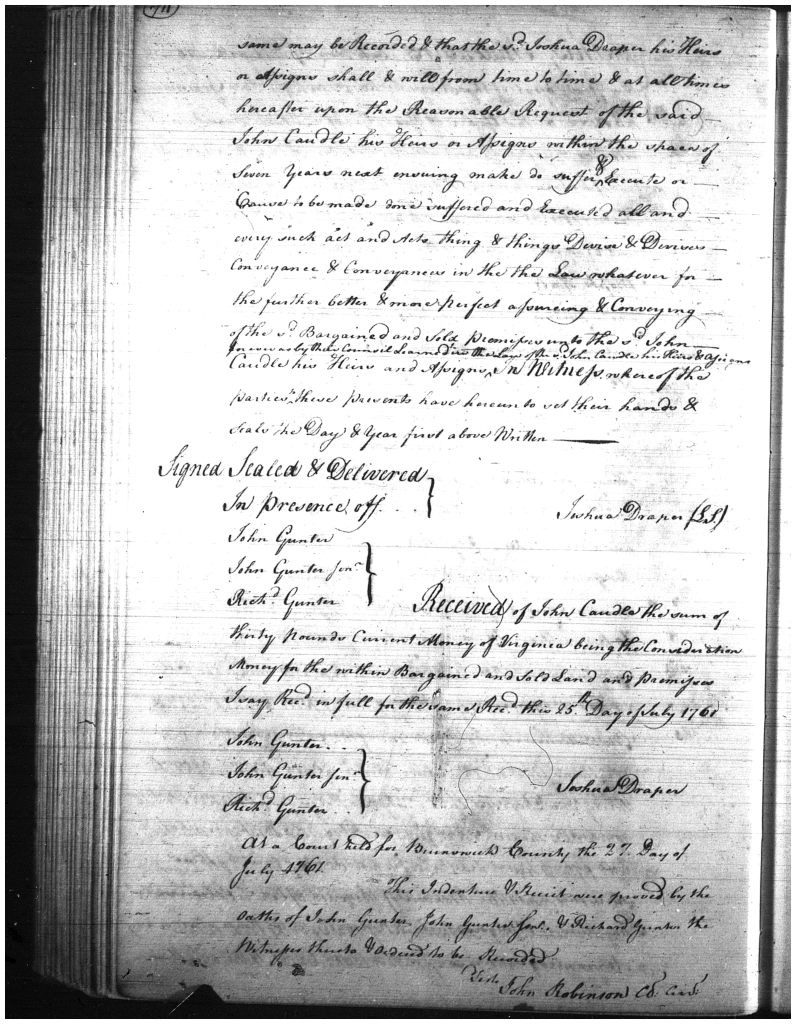 same may be Recorded & that the sd. Joshua Draper his Heirs
or Assigns shall & will from time to time & at all times
hereafter upon the Reasonable Request of the said
John Caudle his Heirs or Assigns within the space of
Seven Years next ensuing make do suffer & Execute or
Cause to be made done suffered and Executed all and
every such act and Acts thing & things Devise & Devises
Conveyance & Conveyances in the the Law whatever for
the further better & more perfect assureing & Conveying
of the sd. Bargained and Sold premises unto the sd. John
by their Council Learned in the Law of the sd. John Caudle his Heirs & Assigns
Caudle his Heirs and Assigns, In Witness whereof the
parties to these presents have hereunto set their hands &
Seals the Day & Year first above Written
Signed Sealed & Delivered
In presence off. . .
Joshua Draper (L.S.)
John Gunter
John Gunter Junr
Richd. Gunter
Received of John Caudle the sum of
thirty Pounds Current Money of Virginia being the Consideration
Money for the within Bargained and Sold Land and Premisses
I say Recd. in full for the same Recd. this 25th Day of July 1761
John Gunter. .
John Gunter Junr
Joshua Draper
Richd. Gunter . .
At a Court held for Brunswick County the 27. Day of
July 1761
This Indenture & Receit were proved by the
Oaths of John Gunter, John Gunter Junr. & Richard Gunter the
Witnesses thereto & ordered to be Recorded
Test.
John Robinson